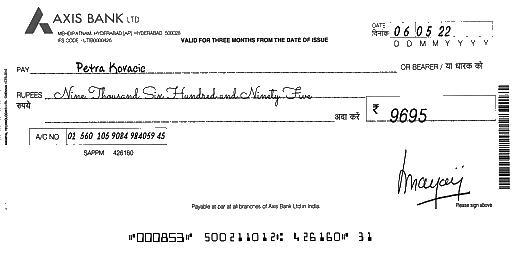 AXIS BANK LTD
MEHDIPATNAM, HYDERABAD (AP) HYDERABAD 500028
IFS CODE - UTIB0000426
VALID FOR THREE MONTHS FROM THE DATE OF ISSUE
DATE
दिनांक 06 05 22
D D M M Y Y Y Y
PAY Petra Kovacic OR BEARER / या धारक को
RUPEES Nine Thousand Six Hundred and Ninety Five
रुपये अदा करें ₹ 9695
A/C NO 01 560 105 9084 984059 45
SAPPM 426160
Payable at par at all branches of Axis Bank Ltd in India.
Please sign above
⑈000853⑈ 500211012⑆ 426160⑈ 31